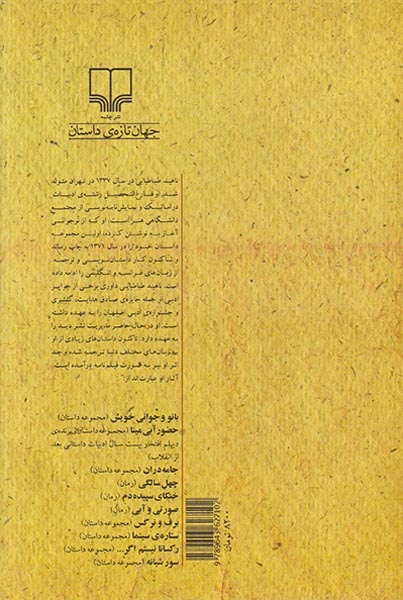 نشر چشمه
جهان تازه‌ی داستان
ناهید طباطبایی در سال ۱۳۳۷ در تهران متولد
شد. او فارغ‌التحصیل رشته‌ی ادبیات
دراماتیک و نمایش‌نامه‌نویسی از مجتمع
دانشگاهی هنر است. او که از نوجوانی
آغاز به نوشتن کرده، اولین مجموعه
داستان خود را در سال ۱۳۷۱ به چاپ رساند
و تاکنون کار داستان‌نویسی و ترجمه
از زبان‌های فرانسه و انگلیسی را ادامه داده
است. ناهید طباطبایی داوری برخی از جوایز
ادبی از جمله جایزه‌ی صادق هدایت، گلشیری
و جشنواره‌ی ادبی اصفهان را به عهده داشته
است. او در حال حاضر مدیریت نشر دید را
به عهده دارد. تاکنون داستان‌های زیادی از او
به زبان‌های مختلف دنیا ترجمه شده و چند
اثر او نیز به صورت فیلم‌نامه درآمده است.
آثار او عبارت‌اند از:
بانو و جوانی خویش (مجموعه داستان)
حضور آبی مینا (مجموعه داستان/ برنده‌ی
دیپلم افتخار بیست سال ادبیات داستانی بعد
از انقلاب)
جامه‌دران (مجموعه داستان)
چهل سالگی (رمان)
خنکای سپیده‌دم (رمان)
صورتی و آبی (رمان)
برف و نرگس (مجموعه داستان)
ستاره‌ی سینما (مجموعه داستان)
رکسانا نیستم اگر... (مجموعه داستان)
سور شبانه (مجموعه داستان)
۸۲۰۰ تومان
9 789643 627102